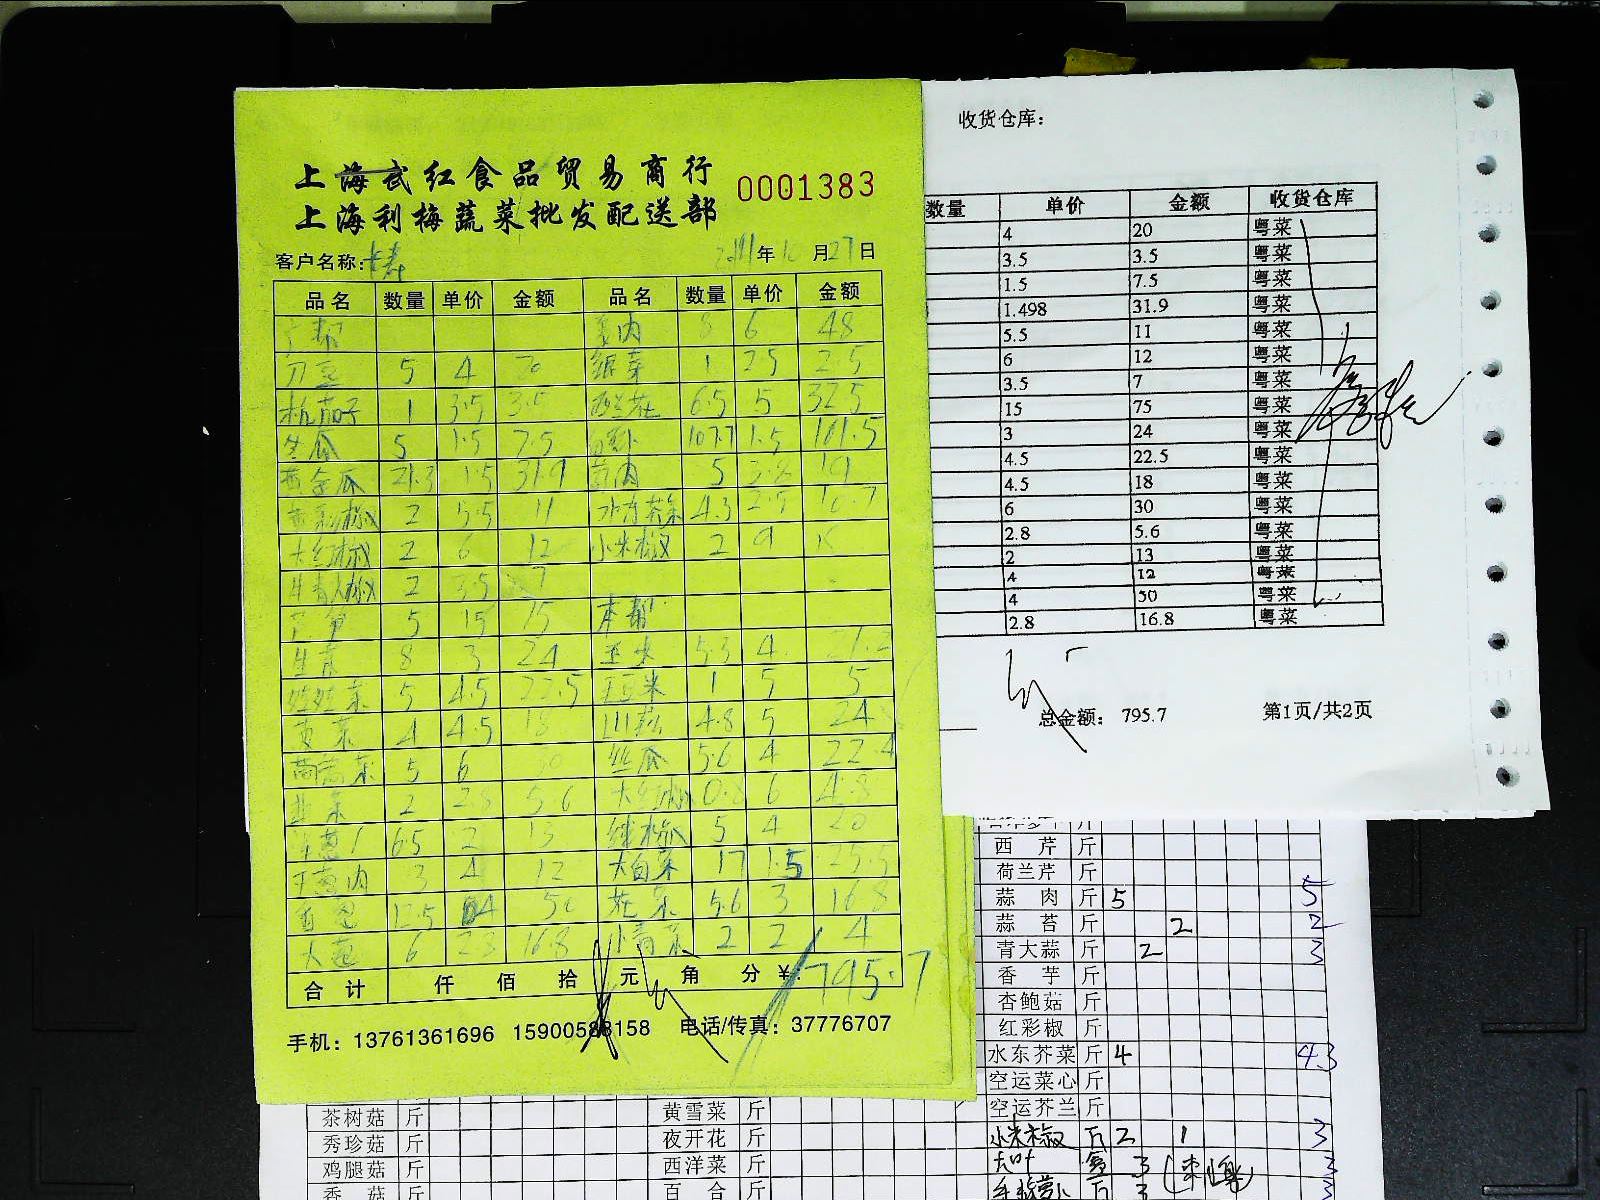 上海武红食品贸易商行
上海利梅蔬菜批发配送部
0001383
客户名称:
年10月27日
品名 数量 单价 金额 品名 数量 单价 金额
8 6 48
刀豆 5 4 银芽 1 25 2.5
杭茄子 1 3.5 3.5 西兰花 6.5 5 32.5
冬瓜 5 1.5 7.5 107.7 1.5 161.5
21.3 1.5 31.9 5 3.8 19
2 5.5 11 水东芥菜 4.3 2.5 10.7
大红椒 2 6 12 小米椒 2 9
2 3.5 7
5 15 75 本帮
生菜 8 3 24 玉米 5.3 4. 21.2
娃娃菜 5 4.5 22.5 1 5 5
黄菜 4 4.5 18 山药 4.8 5 24
茼蒿菜 5 6 30 丝瓜 5.6 4 22.4
韭菜 2 2.8 5.6 大红椒 0.8 6 4.8
6.5 2 13 5 4 20
3 4 12 大白菜 17 1.5 25.5
香葱 12.5 4 50 花菜 5.6 3 16.8
大葱 6 2.8 16.8 小青菜 2 2 4
合计 仟 佰 拾 元 角 分 ¥: 795.7
手机：13761361696 15900588158 电话/传真：37776707
收货仓库：
数量 单价 金额 收货仓库
4 20 粤菜
3.5 3.5 粤菜
1.5 7.5 粤菜
1.498 31.9 粤菜
5.5 11 粤菜
6 12 粤菜
3.5 7 粤菜
15 75 粤菜
3 24 粤菜
4.5 22.5 粤菜
4.5 18 粤菜
6 30 粤菜
2.8 5.6 粤菜
2 13 粤菜
4 12 粤菜
4 50 粤菜
2.8 16.8 粤菜
总金额： 795.7 第1页/共2页
西芹 斤
荷兰芹 斤
蒜肉 斤 5 5
蒜苔 斤 2 2
青大蒜 斤 2 3
香芋 斤
杏鲍菇 斤
红彩椒 斤
水东芥菜 斤 4 4.3
空运菜心 斤
茶树菇 斤 黄雪菜 斤 空运芥兰 斤
秀珍菇 斤 夜开花 斤 小米椒 斤 2 1 3
鸡腿菇 斤 西洋菜 斤 大叶 3 3
香菇 斤 百合 斤 斤 3 3